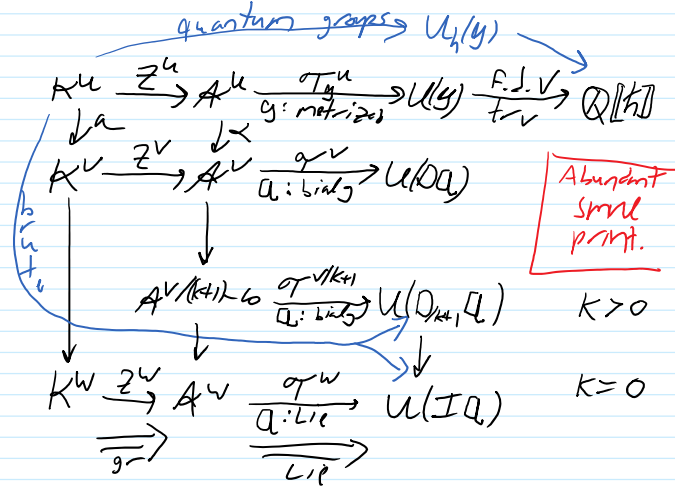 quantum groups U_ħ(g)
K^u Z^u A^u T_g^u g: metrized U(g) f.d. V tr_V Q[[ħ]]
a α
K^v Z^v A^v T^v a: bialg U(Da)
Abundant
small
print.
brute
A^{v/(k+1)-co} T^{v/k+1} a: bialg U(D_{/k+1} a) k>0
K^w Z^w A^w T^w a: Lie U(Ia) k=0
gr Lie